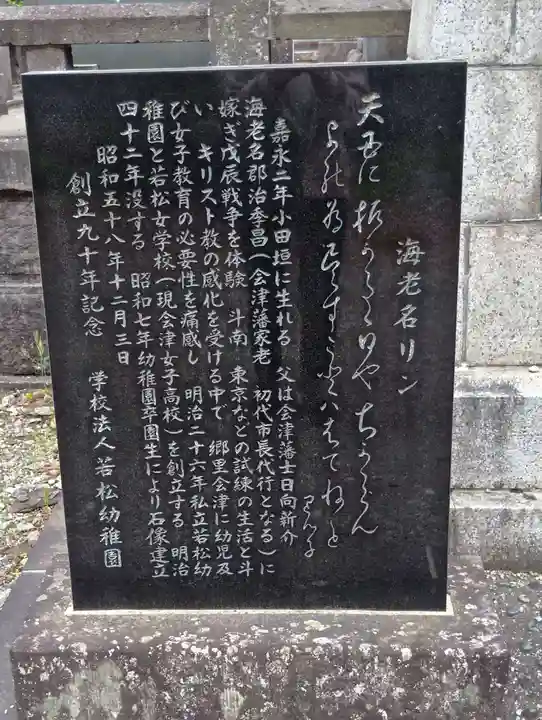 海老名リン
天父に祈
りんす
嘉永二年小田垣に生れる 父は会津藩士日向新介
海老名郡治季昌(会津藩家老 初代市長代行となる)に
嫁ぎ戊辰戦争を体験 斗南 東京などの試練の生活と斗
い キリスト教の感化を受ける中で 郷里会津に幼児及
び女子教育の必要性を痛感し 明治二十六年私立若松幼
稚園と若松女学校(現会津女子高校)を創立する 明治
四十二年没する 昭和七年幼稚園卒園生により石像建立
昭和五十八年十二月三日
創立九十年記念
学校法人若松幼稚園